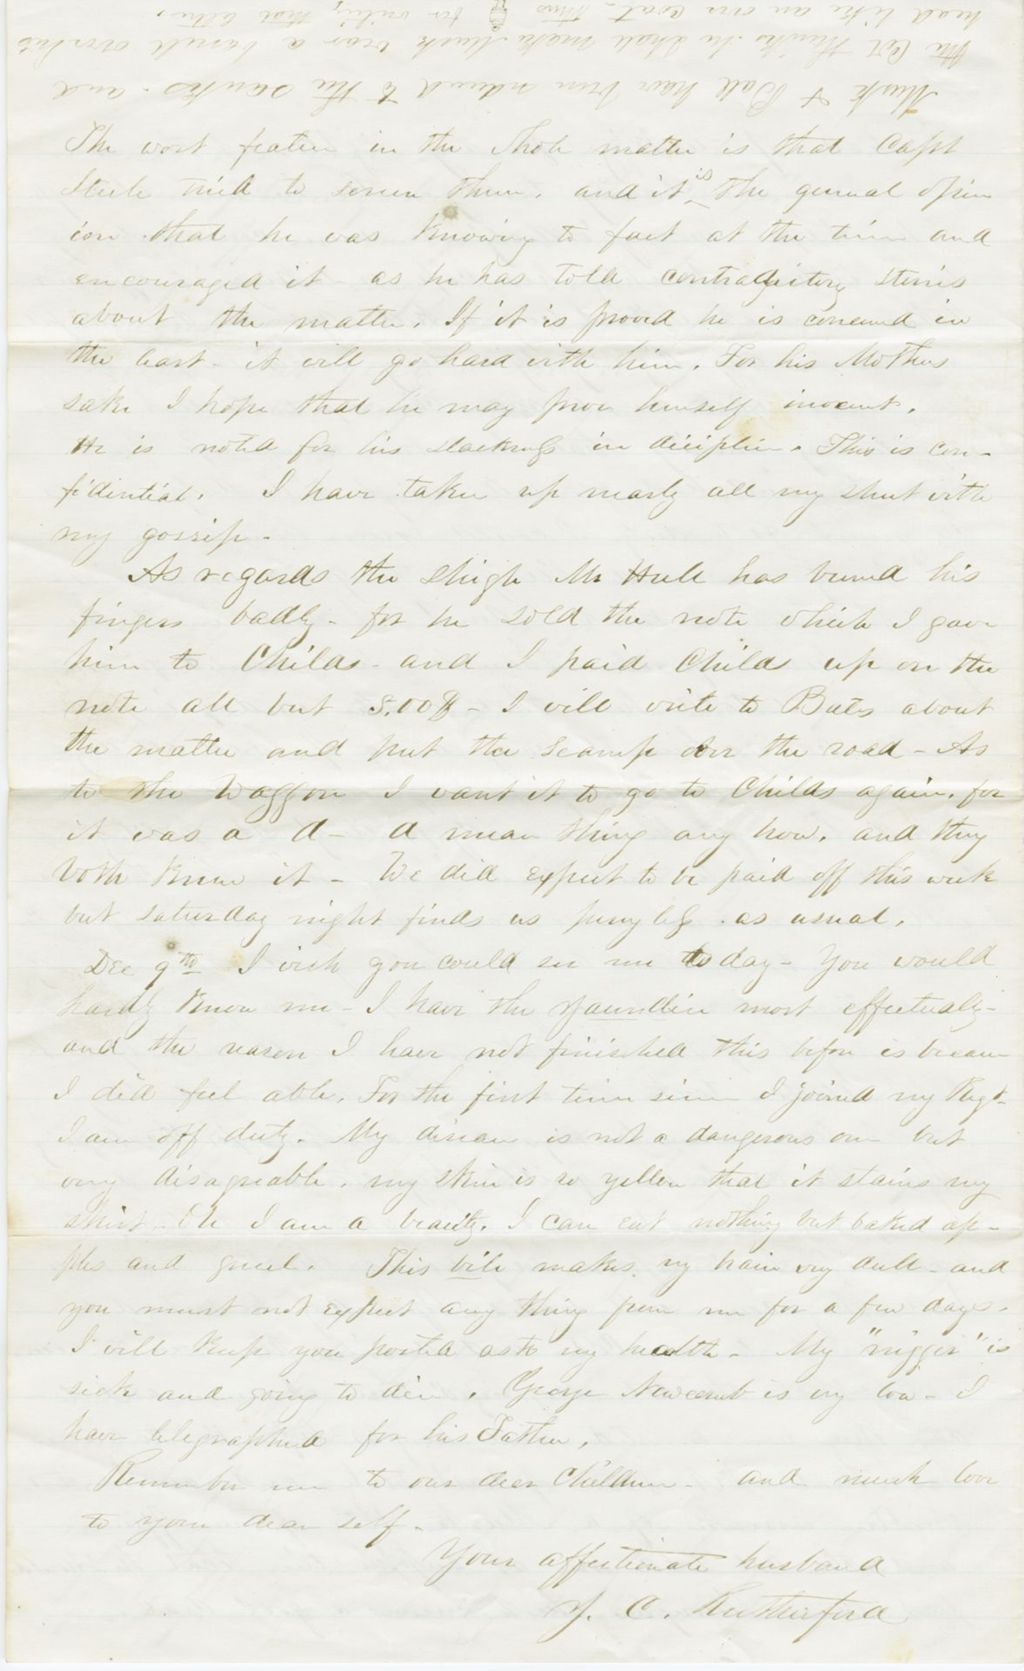 Husk & Ball have been reduced to the ranks - and
the Col thinks he shall make Husk wear a barrel over his
head like an over coat, thus for writing that letter.
The worst feature in the whole matter is that Capt
Steele tried to screen them. and it is the general opin
ion that he was knowing to fact at the time and
encouraged it - as he has told contradictory stories
about the matter. If it is proved he is concerned in
the least - it will go hard with him. For his Mothers
sake I hope that he may prove himself inocent.
He is noted for his slackness in diciplin. This is con-
fidential. I have taken up nearly all my sheet with
my gossip -
As regards the sleigh Mr Hull has burned his
fingers badly - for he sold the note which I gave
him to Childs - and I paid Childs up on the
note all but 8.00$ - I will write to Bates about
the matter and put the scamp over the road - As
to the Waggon I want it to go to Childs again. for
it was a d- d mean thing any how. and they
both knew it - We did expect to be paid off this week
but saturday night finds us pennyless . as usual.
Dec 9th I wish you could see me to day - You would
hardly know me - I have the Jaundice most effectually -
and the reason I have not finished this before is because
I did feel able. For the first time since I joined my Regt-
I am off duty. My disease is not a dangerous one but
very disagreable. my skin is so yellow that it stains my
shirt - Oh I am a beauty. I can eat nothing but baked ap-
ples and gruel. This bile makes my brain very dull - and
you must not expect any thing from me for a few days -
I will keep you posted as to my health - My "nigger" is
sick and going to die . George Newcomb is very low - I
have telegraphed for his Father.
Remember me to our dear Children - and much love
to your dear self -
Your affectionate husband
J. C. Rutherford